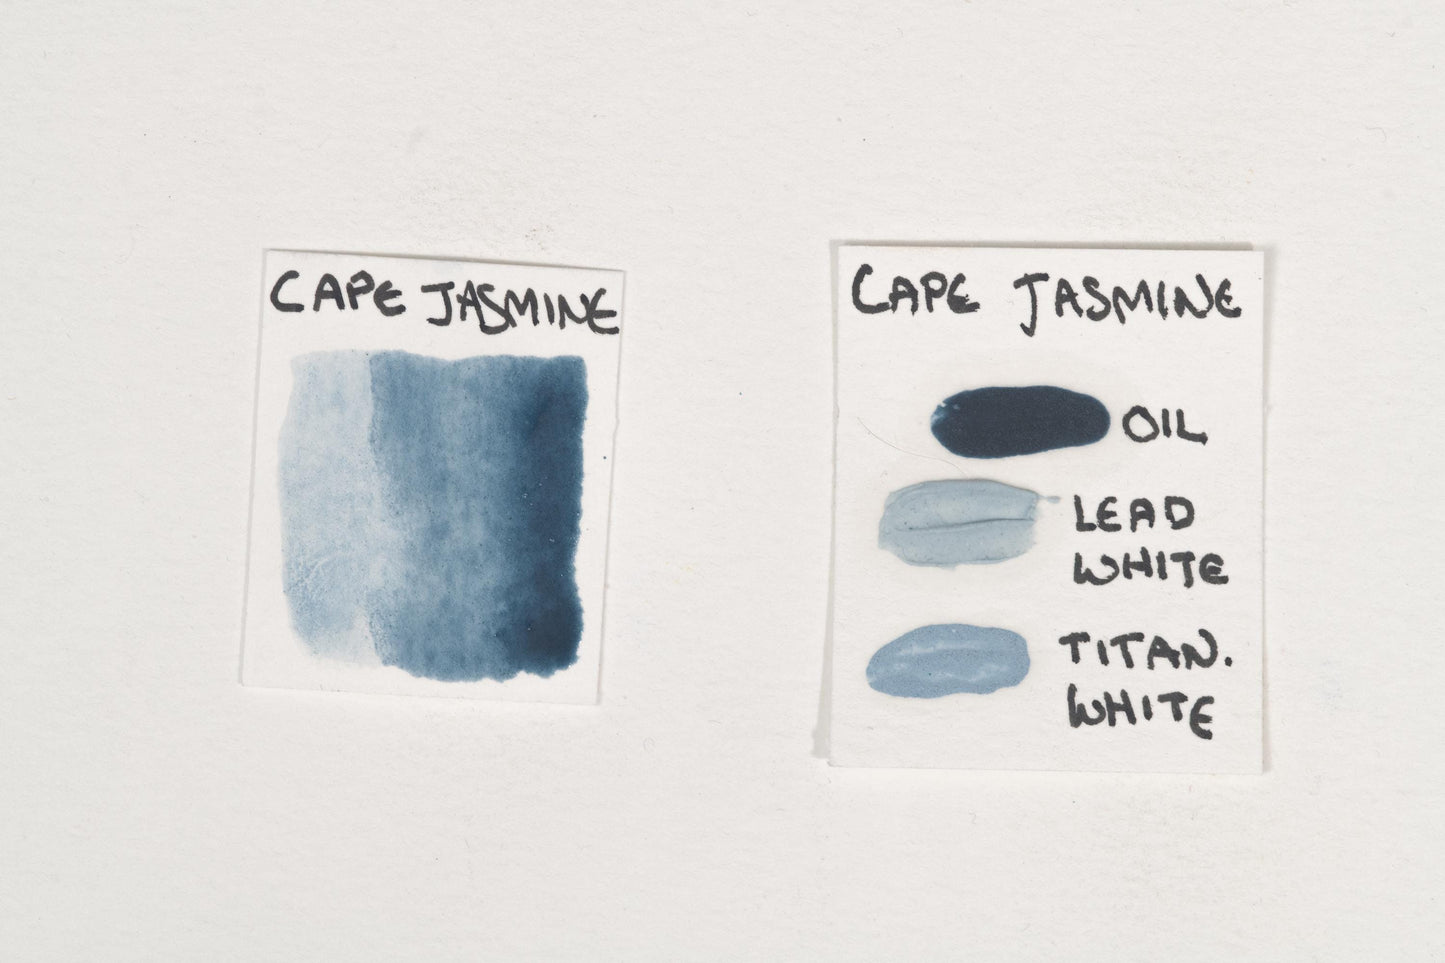 CAPE JASMINE
CAPE JASMINE
OIL
LEAD
WHITE
TITAN.
WHITE